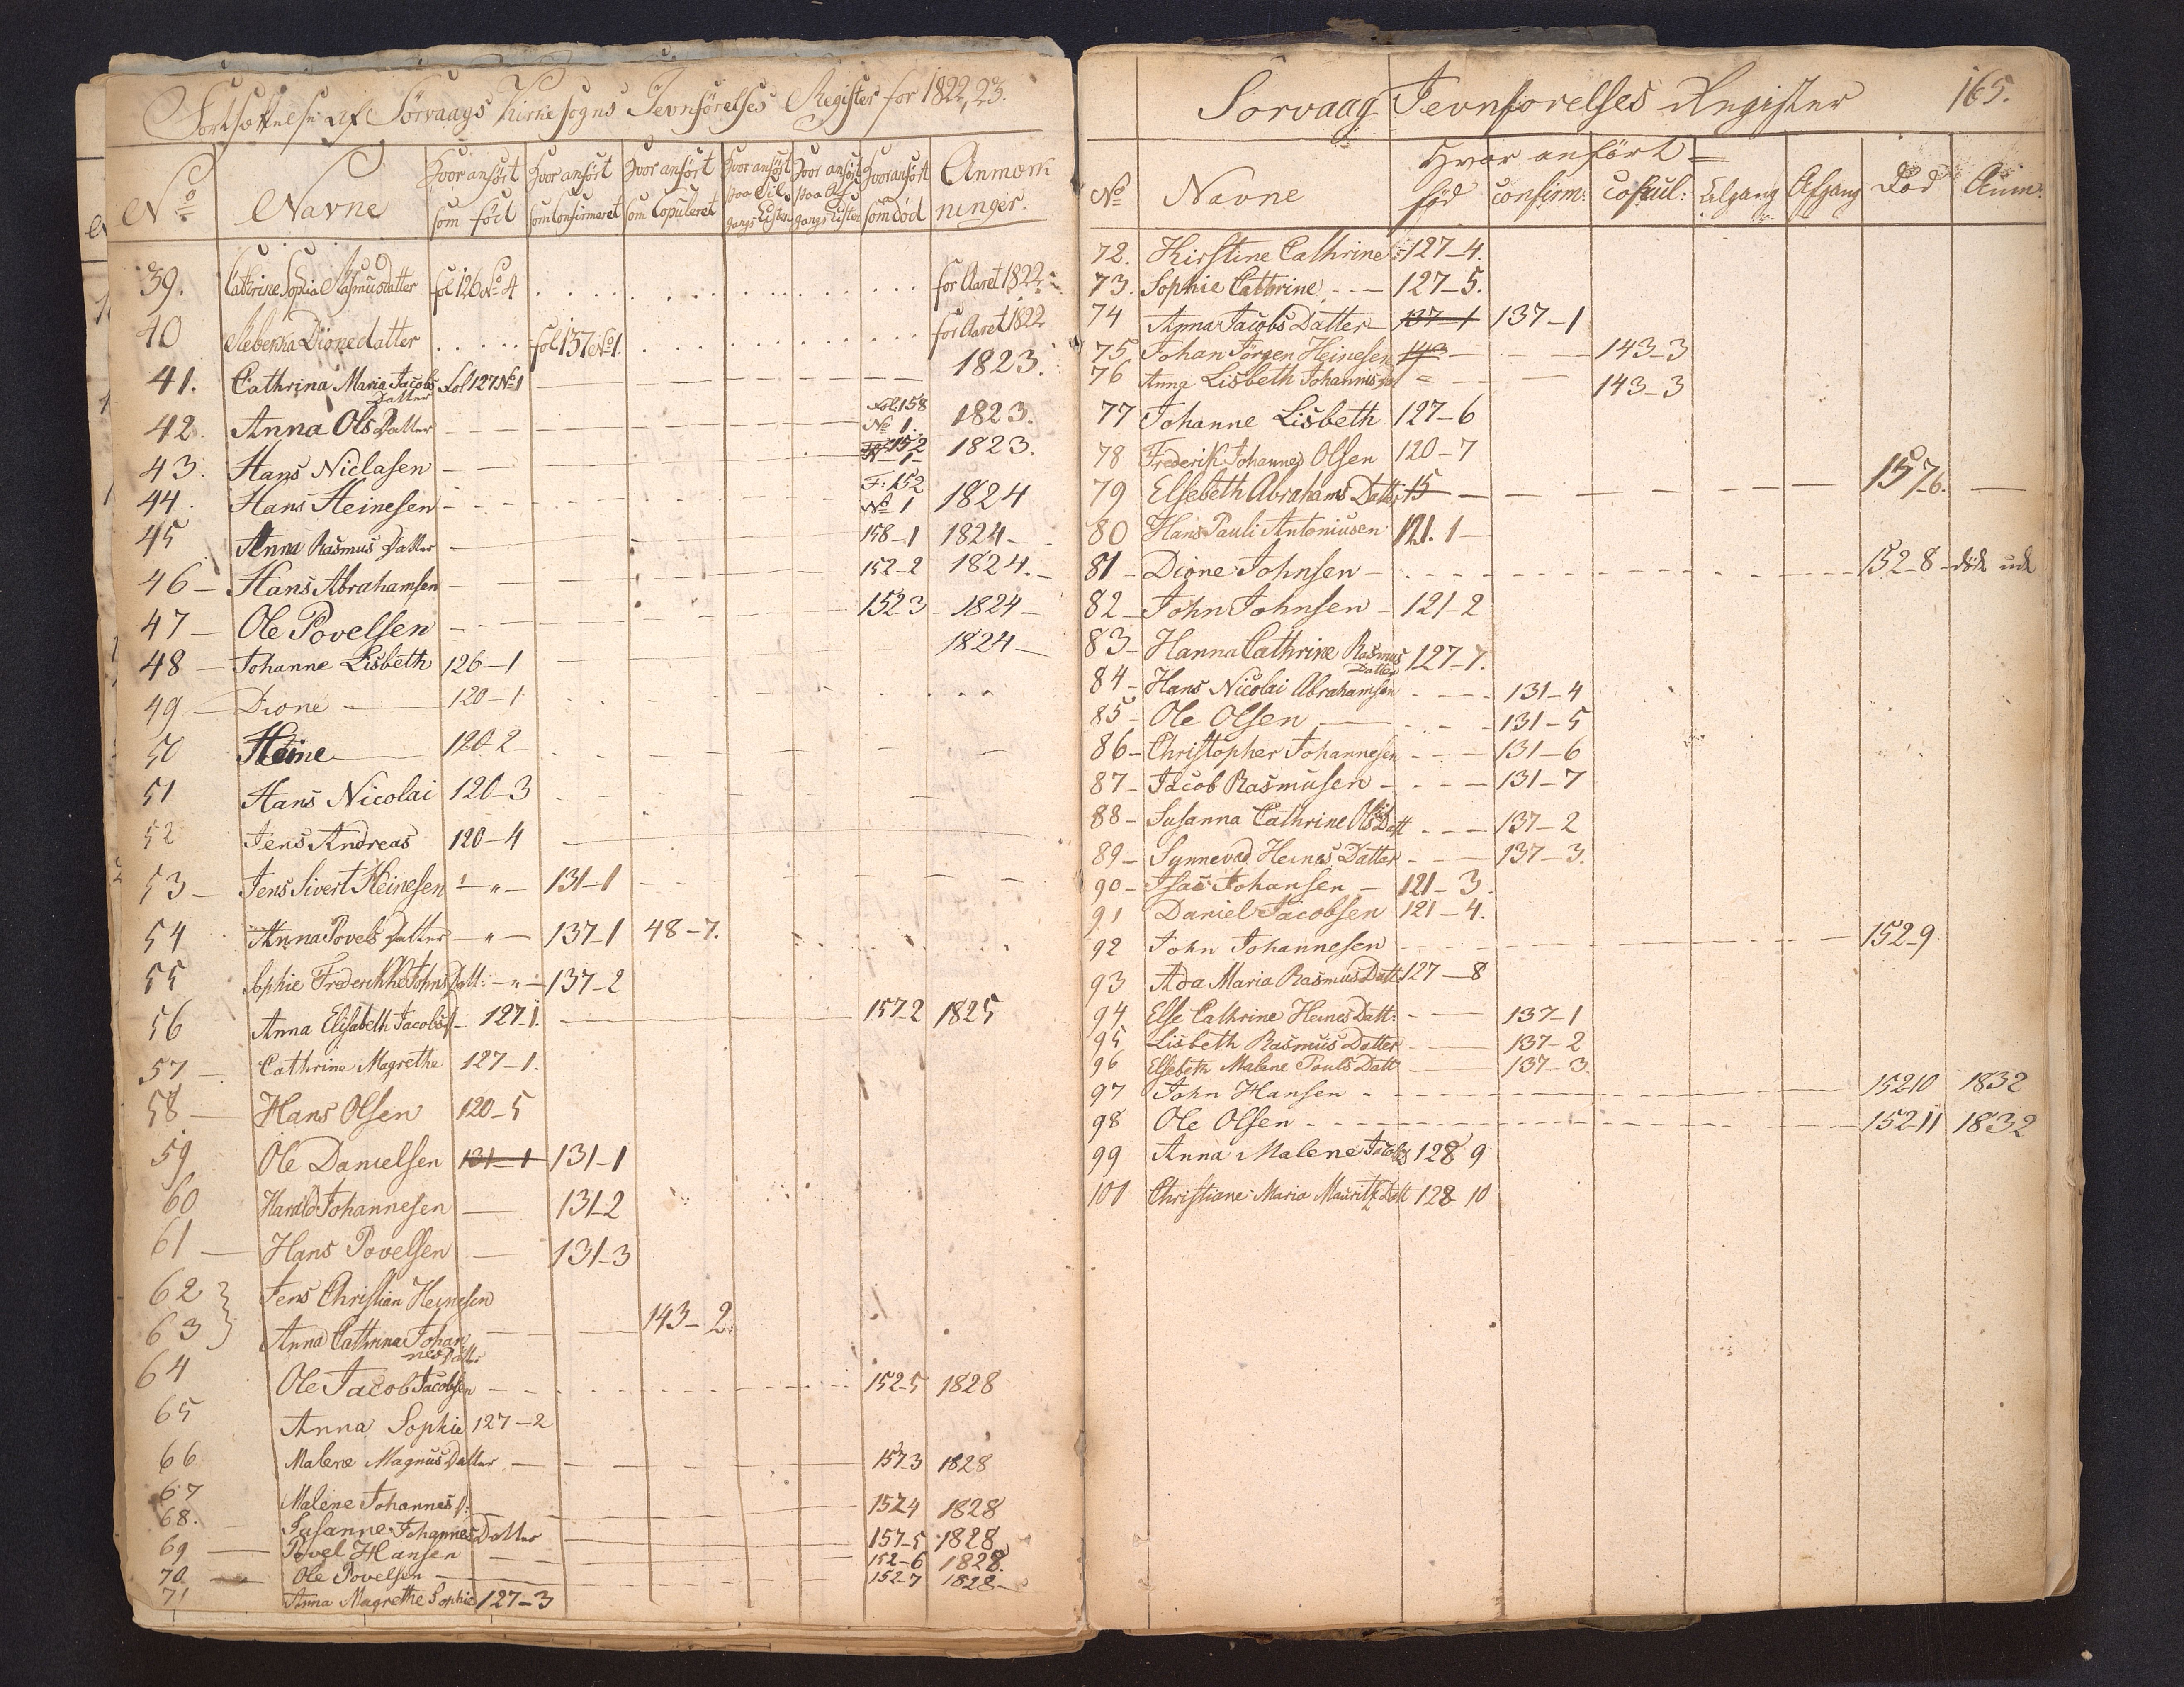 Fortsættelse af Sörvaags Kirkesogns Jevnförelses Register for 1822, 23.
No Navne Hvor anfört som föd Hvor anfört som Confirmeret Hvor anfört som Copuleret Hvor anfört paa Tilgangs Listen Hvor anfört paa Afgangs Listen Hvor anfört som död Anmærkninger.
39. Cathrine Sophia Rasmusdatter fol 126 No 4 for Aaret 1822
40 Rebekka Dionedatter fol 137 No 1. for Aaret 1822
41. Cathrina Maria Jacobs Datter Fol 127 No 1 1823.
42. Anna Ols Datter Fol. 158 No 1. 1823.
43. Hans Niclasen 152 1 1823.
44. Hans Heinesen F. 152 No 1 1824
45 Anna Rasmus Datter 158-1 1824-
46 - Hans Abrahamsen 152-2 1824.-
47 - Ole Povelsen 152-3 1824-
48 - Johanne Lisbeth 126-1 1824-
49 - Dione 120-1
50 Heine 120-2-
51 Hans Nicolai 120-3
52 Jens Andreas 120-4
53 - Jens Sivert Heinesen 131-1
54 Anna Povels Datter - " - 137-1 48-7.
55 Sophie Frederikke Johns Datt: - " - 137-2
56 Anna Elisabeth Jacobsd 127-1. 157-2 1825
57 - Cathrine Magrethe 127-1.
58 - Hans Olsen 120-5
59 Ole Danielsen 131-1 131-1
60 Harald Johannesen - 131-2
61 - Hans Povelsen - 131-3
62 } Jens Christian Heinesen
63 } Anna Cathrina Johannes Datter 143-2.
64 Ole Jacob Jacobsen 152-5 1828
65 Anna Sophie 127-2
66 Malene Magnus Datter 157-3 1828
67 Malene Johannes d: 157-4 1828
68. Susanne Johannes Datter 157-5 1828
69 - Povel Hansen 152-6 1828.
70 - Ole Povelsen 152-7 1828-
71 Anna Magrethe Sophie 127-3
Sorvaag Jevnforelses Register 165.
No Navne Hvor anfört =
föd confirm: copul: Tilgang Afgang Död Anm:
72. Kirstine Cathrine 127-4.
73. Sophie Cathrine 127-5.
74 Anna Jacobs Datter 137-1 137-1
75 Johan Jörgen Heinesen 143 - - 143-3
76 Anna Lisbeth Johannis d 143-3
77 Johanne Lisbeth 127-6
78 Frederik Johannes Olsen 120-7
79 Elsebeth Abrahams Datter 15 157-6.
80 Hans Pauli Antoniusen 121.1-
81 - Dione Johnsen 152-8 döde ude
82 - John Johnsen - 121-2
83 - Hanna Cathrine Rasmus Datter 127-7.
84 - Hans Nicolai Abrahamsen 131-4
85 - Ole Olsen 131-5
86 - Christopher Johannesen 131-6
87 - Jacob Rasmusen 131-7
88 - Susanna Cathrine Ols Datt 137-2
89 - Synneva Heines Datter 137-3.
90 - Isac Johansen - 121-3.
91 Daniel Jacobsen 121-4.
92 John Johannesen 152-9
93 Ada Maria Rasmus Datt 127-8
94 Else Cathrine Heines Datt: 137-1
95 Lisbeth Rasmus Datter 137-2
96 Elsebeth Malene Pouls Datt 137-3.
97 John Hansen 152-10 1832
98 Ole Olsen 152-11 1832
99 Anna Malene Jacobs 128 9
101 Christiane Maria Mauritz Datt 128 10